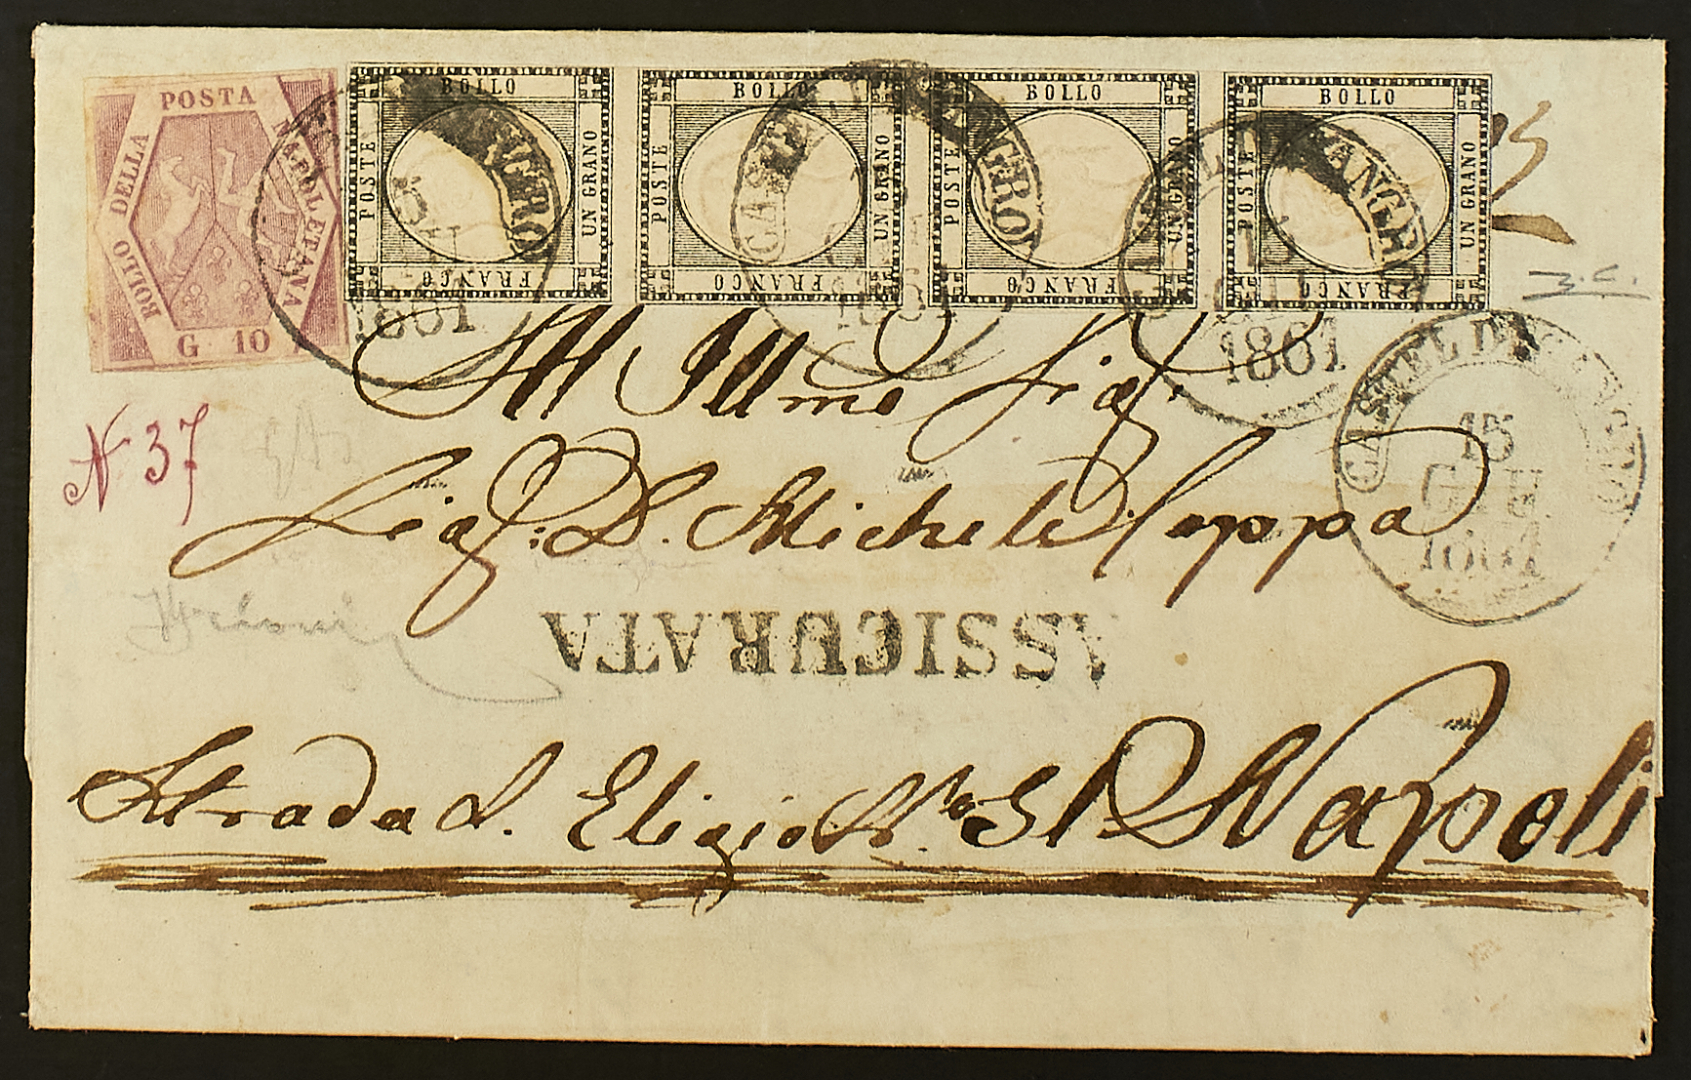 BOLLO DELLA POSTA NAPOLETANA G 10
BOLLO POSTE UN GRANO FRANCO
BOLLO POSTE UN GRANO FRANCO
BOLLO POSTE UN GRANO FRANCO
BOLLO POSTE UN GRANO FRANCO
1861
1861
15 1861
CASTEL DI SANGRO
15 GIU 1861
N 37
All Illmo Sig.
Sig: D. Michele Coppa
ASSICURATA
Strada S. Eligio
Napoli